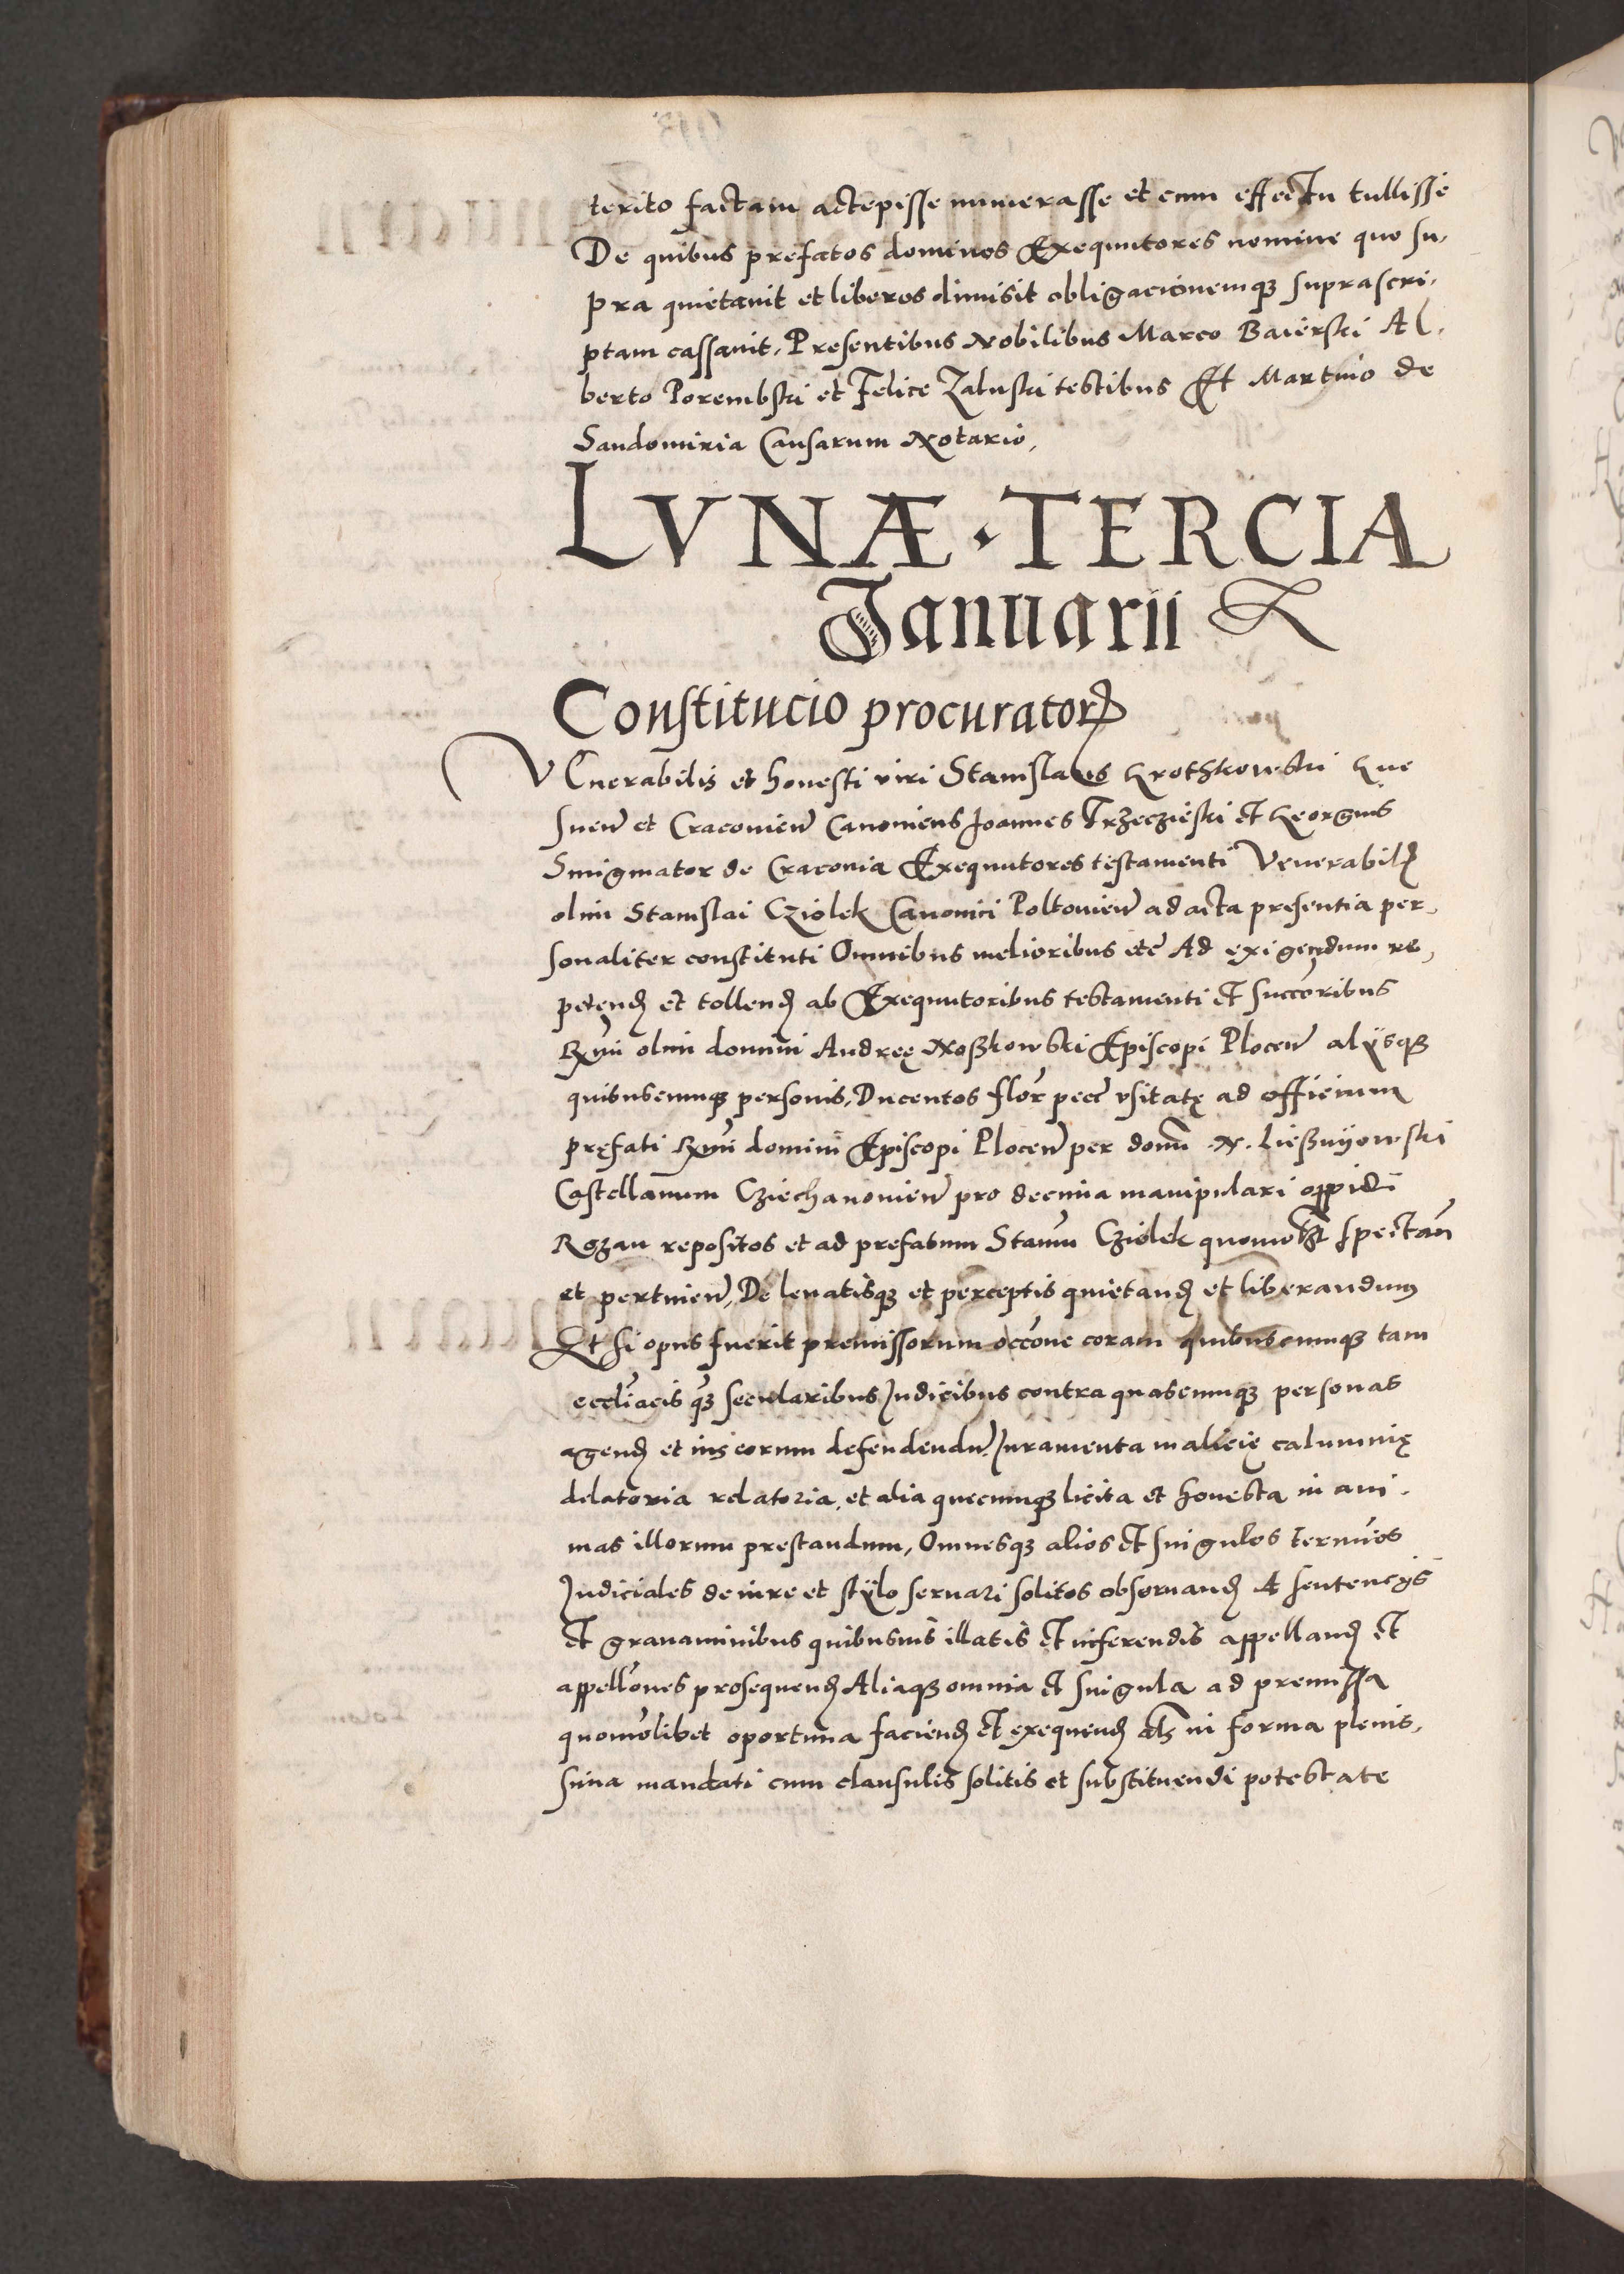 terito factam accepisse numerasse et cum effectu tullisse
De quibus prefatos dominos Exequutores nomine quo su,
pra quietavit et liberos dimisit obligacionemqȝ suprascri,
ptam cassavit, Presentibus Nobilibus Marco Baierski Al,
berto Porembski et Felice Zaluski testibus Et Martino de
Sandomiria Causarum Notario,
LVNÆ · TERCIA
Januarii
Constitucio procuratorꝝ
VEnerabilis et honesti viri Stanislaus Krothkowski Gne
snen̄ et Cracovien̄ Canonicus Joannes Trzeczieski et Georgius
Smigmator de Cracovia Exequutores testamenti Venerabilꝭ
olim Stanislai Cziolek Canonici Poltovien̄ ad acta presentia per,
sonaliter constituti Omnibus melioribus etc̄ Ad exigendum re,
petendꝭ et tollendꝭ ab Exequutoribus testamenti et succoribus
Rx̄mi olim domini Andreę Noßkowski Episcopi Plocen̄ alijsqȝ
quibuscunqȝ personis, Ducentos flor̄ pecc̄ vsitatę ad officium
pręfati Rx̄mi domini Episcopi Plocen̄ per don̄m .N. Ließnijowski
Castellanum Cziechanovien̄ pro decima manipulari oppidi
Rozan repositos et ad prefatum Stan̄um Cziolek quomol̄t spectan̄
et pertinen̄, De levatisqȝ et perceptis quietandꝭ et liberandum
Et si opus fuerit premissorum occ̄one coram quibuscumqȝ tam
eccl̄iacis qȝ secularibus Judicibus contra quascumqȝ personas
agendꝭ et ius eorum defenden̄du Juramenta malicię calumnię
delatoria relatoria, et alia quecumqȝ licita et honesta in ani,
mas illorum prestandum, Omnesqȝ alios et singulos termi̅os
Judiciales de iure et stÿlo servari solitos observandꝭ A sentencijs
et gravaminibus quibusvis illatis et inferendis appellandꝭ et
appell̄ones prosequendꝭ Aliaqȝ omnia et singula ad premissa
quomolibet oportuna faciendꝭ et exequendꝭ al̄s in forma plenis,
sima mandati cum clausulis solitis et substituendi potestate